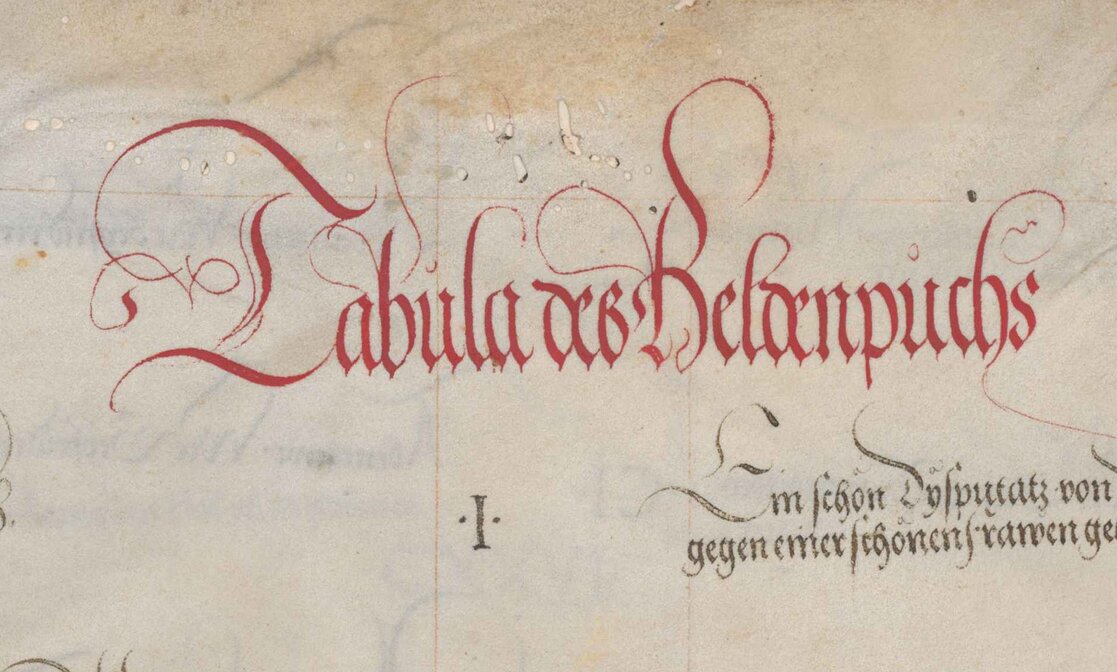 Tabula des Heldenpuchs
·I·
Ein schön Dysputatz von
gegen einer schönen frawen